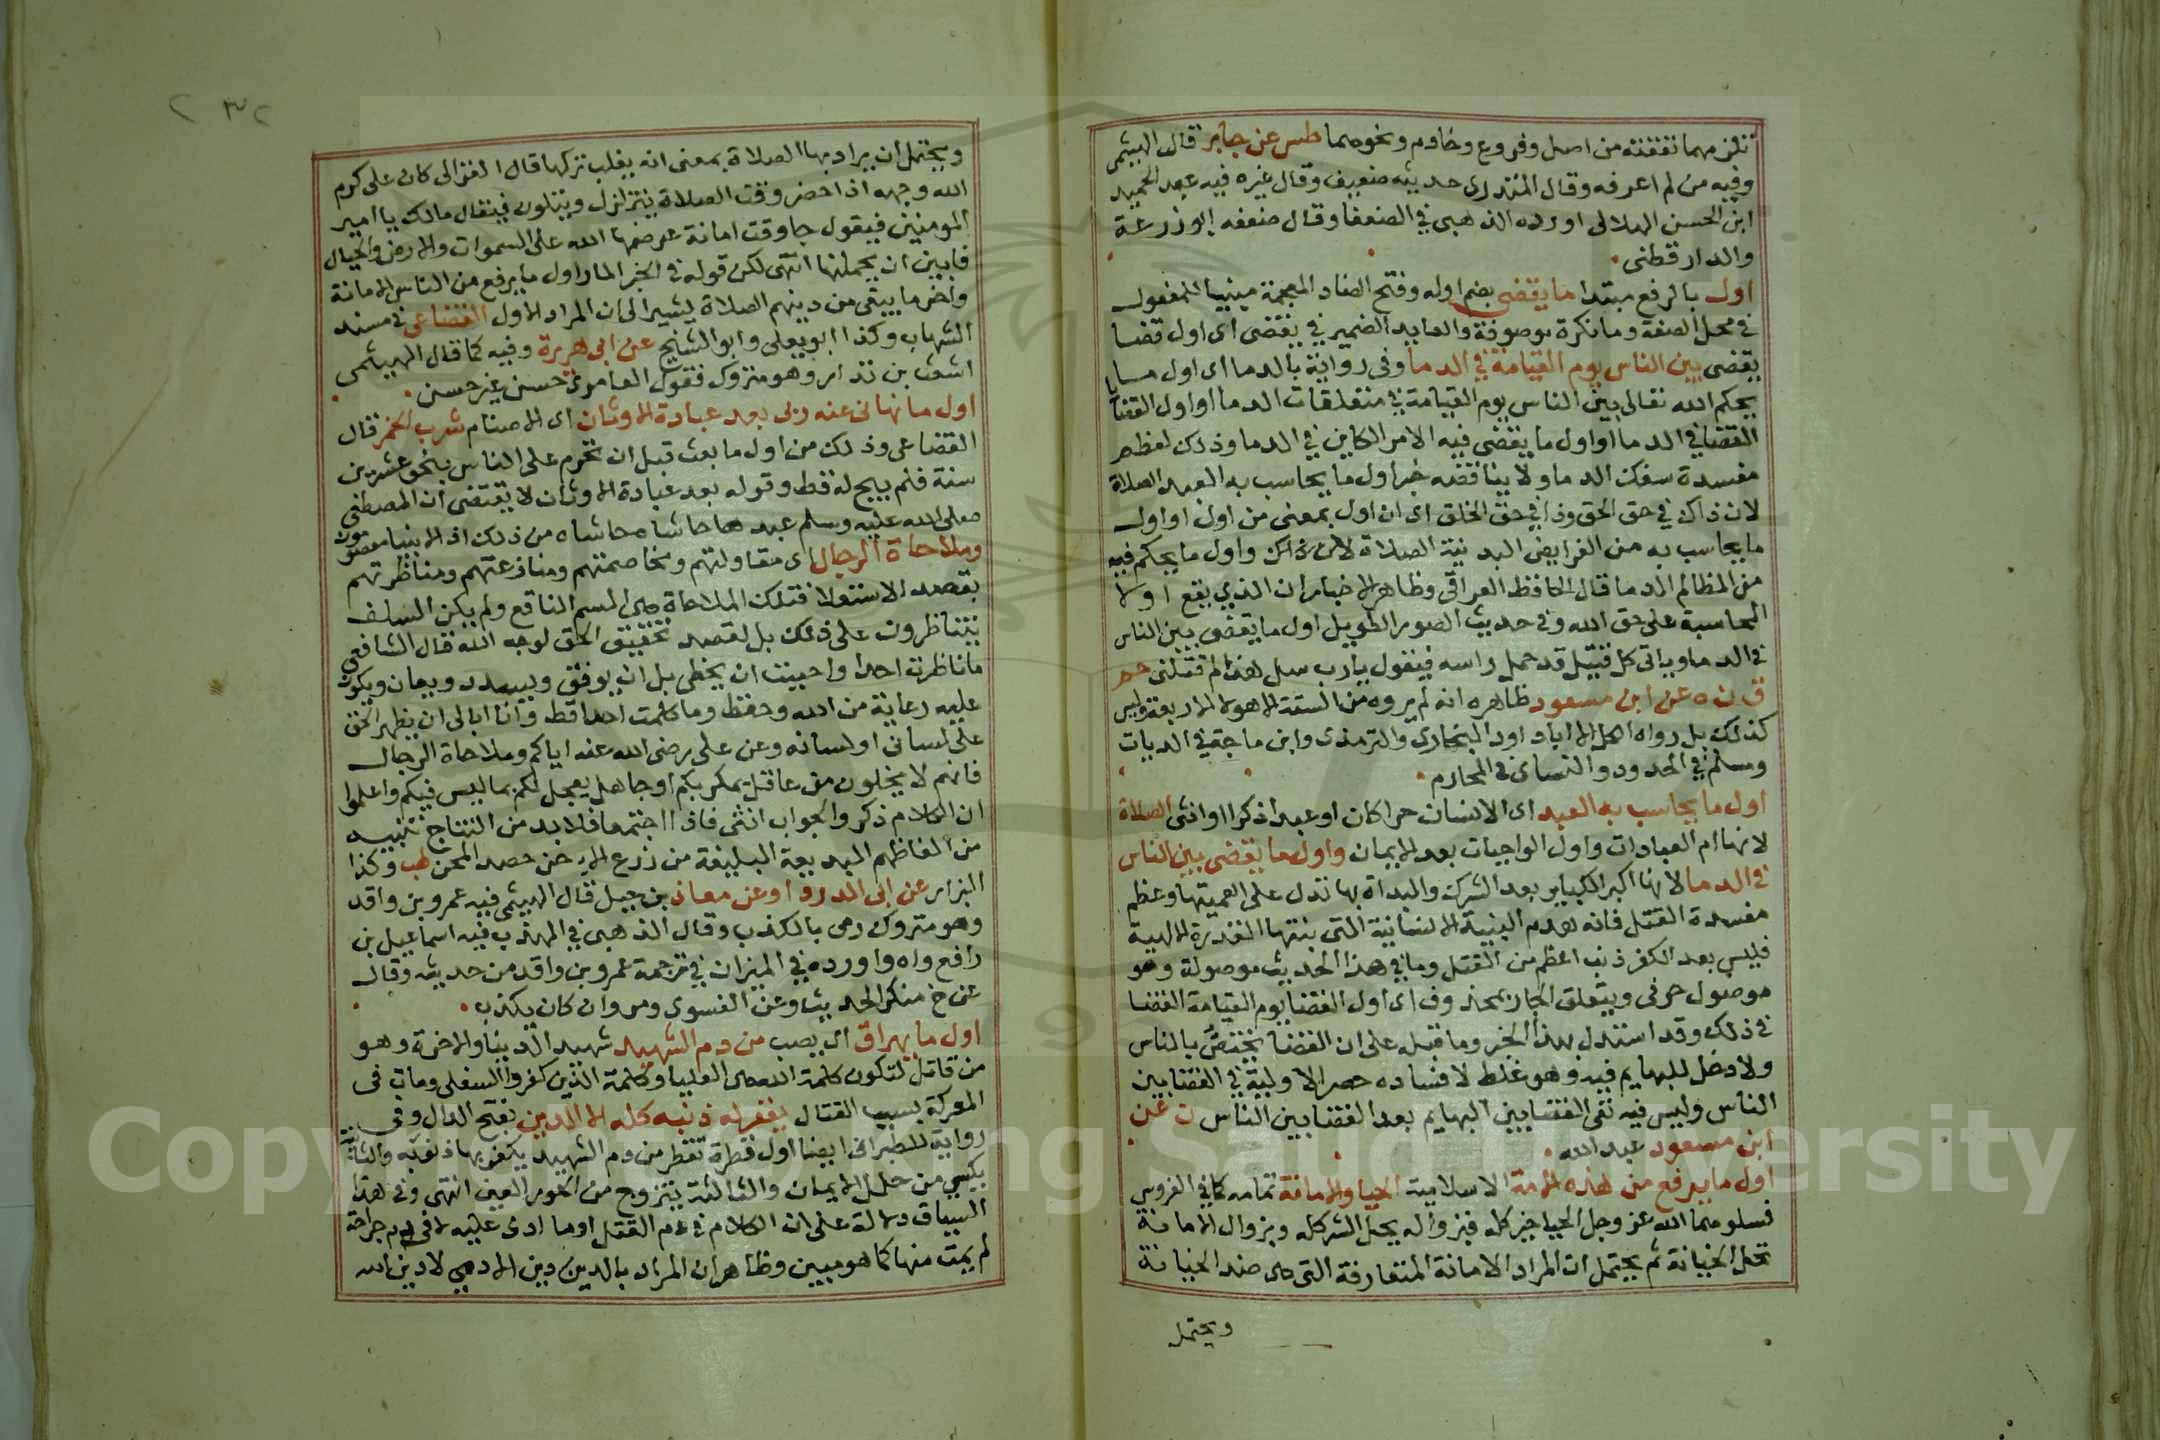 تلزمهما نفقته من اصل وفروع وخادم ونحوهما طس عن جابر قال الهيثمى
وفيه من لم اعرفه وقال المنذرى حديثه ضعيف وقال غيره فيه عبد الحميد
ابن الحسن الهلالى اورده الذهبى في الضعفا وقال ضعفه ابو زرعة
والدارقطنى
اول بالرفع مبتدا ما يقضى بضم اوله وفتح الضاد المعجمة مبنيا للمفعول
في محل الصفة وما نكرة موصوفة والعايد الضمير في يقضى اى اول قضا
يقضى بين الناس يوم القيامة في الدما وفى رواية بالدما اى اول ما
يحكم الله تعالى بين الناس يوم القيامة في متعلقات الدما او اول القضايا
القضا في الدما او اول ما يقضى فيه الامر الكاين في الدما وذلك لعظم
مفسدة سفك الدما ولا يناقضه خبر اول ما يحاسب به العبد الصلاة
لان ذاك في حق الحق وذا في حق الخلق اى ان اول بمعنى من اول او اول
ما يحاسب به من الفرايض البدنية الصلاة واول ما يحكم فيه
من المظالم الدما قال الحافظ العراقى وظاهر الاخبار ان الذي يقع اولا
المحاسبة على حق الله وفى حديث الصور الطويل اول ما يقضى بين الناس
في الدما وياتى كل قتيل قد حمل راسه فيقول يا رب سل هذا لم قتلنى حم
ق ن ه عن ابن مسعود ظاهره انه لم يروه من الستة الا هولا الاربعة وليس
كذلك بل رواه اهل الا ابا داود البخارى والترمذى وابن ماجة في الديات
ومسلم في الحدود والنساى في المحارم
اول ما يحاسب به العبد اى الانسان حرا كان او عبدا ذكرا او انثى الصلاة
لانها ام العبادات واول الواجبات بعد الايمان واول ما يقضى بين الناس
في الدما لانها اكبر الكباير بعد الشرك والبداة بها تدل على اهميتها وعظم
مفسدة القتل فانه هدم البنية الانسانية التى بنتها القدرة الالهية
فليس بعد الكفر ذنب اعظم من القتل وما في هذا الحديث موصولة وهو
موصول حرفى ويتعلق الجار بمحذوف اى اول القضا يوم القيامة القضا
في ذلك وقد استدل بهذا الخبر وما قبله على ان القضا يختص بالناس
ولا دخل للبهايم فيه وهو غلط لافساده حصر الاولية في القضا بين
الناس وليس فيه نفى القضا بين البهايم بعد القضا بين الناس ن عن
ابن مسعود عبد الله
اول ما يرفع من هذه الامة الاسلامية الحيا والامانة تمامه كما في الفردوس
فسلوهما الله عز وجل الحيا خير كله فبزواله يحل الشر كله وبزوال الامانة
تحل الخيانة ثم يحتمل ان المراد الامانة المتعارفة التى هى ضد الخيانة
ويحتمل
٢٣٢
ويحتمل ان يراد بها الصلاة بمعنى انه يغلب تركها قال الغزالى كان على كرم
الله وجهه اذا حضر وقت الصلاة يتزلزل ويتلون فيقال مالك يا امير
المومنين فيقول جا وقت امانة عرضها الله على السموات والارض والجبال
فابين ان يحملنها انتهى لكن قوله في الخبر المار اول ما يرفع من الناس الامانة
واخر ما يبقى من دينهم الصلاة يشير الى ان المراد الاول القضاعى في مسند
الشهاب وكذا ابو يعلى وابو الشيخ عن ابى هريرة وفيه كما قال الهيثمى
اشعث بن نزار وهو متروك فقول العامرى حسن غير حسن
اول ما نهانى عنه ربى بعد عبادة الاوثان اى الاصنام شرب الخمر قال
القضاعى وذلك من اول ما بعث قبل ان تحرم على الناس بنحو عشرين
سنة فلم يبح له قط وقوله بعد عبادة الاوثان لا يقتضى ان المصطفى
صلى الله عليه وسلم عبدها حاشاه حاشاه من ذلك اذ الانبيا معصومون
وملاحاة الرجال اى مقاولتهم ومخاصمتهم ومنازعتهم ومناظرتهم
بقصد الاستعلا فتلك الملاحاة هى السم الناقع ولم يكن السلف
يتناظرون على ذلك بل لقصد تحقيق الحق لوجه الله قال الشافعى
ما ناظرت احدا واحببت ان يخطى بل ان يوفق ويسدد ويعان ويكون
عليه رعاية من الله وحفظ وما كلمت احدا قط وانا ابالى ان يظهر الحق
على لسانى او لسانه وعن على رضى الله عنه اياكم وملاحاة الرجال
فانهم لا يخلون من عاقل يمكر بكم او جاهل يعجل لكم بما ليس فيكم واعلموا
ان الكلام ذكر والجواب انثى فاذا اجتمعا فلابد من النتاج تنبيه
من الفاظهم البديعة البليغة من زرع الاحن حصد المحن طب وكذا
البزار عن ابى الدردا وعن معاذ بن جبل قال الهيثمى فيه عمرو بن واقد
وهو متروك رمى بالكذب وقال الذهبى في المهذب فيه اسماعيل بن
رافع واه واورده في الميزان في ترجمة عمرو بن واقد من حديثه وقال
عن خ منكر الحديث وعن الفسوى ومروان كان يكذب
اول ما يهراق اى يصب من دم الشهيد شهيد الدنيا والاخرة وهو
من قاتل لتكون كلمة الله هى العليا وكلمة الذين كفروا السفلى ومات فى
المعركة بسبب القتال يغفر له ذنبه كله الا الدين بفتح الدال وفى
رواية للطبرانى ايضا اول قطرة تقطر من دم الشهيد يكفر بها ذنوبه والثانية
يكسى من حلل الايمان والثالثة يتزوج من الحور العين انتهى وفى هذا
السياق دلالة على ان الكلام في دم القتل او ما ادى عليه لا فى دم جراحة
لم يمت منها كما هو مبين وظاهر ان المراد بالدين دين الادمى لا دين الله
Copyright © King Saud University